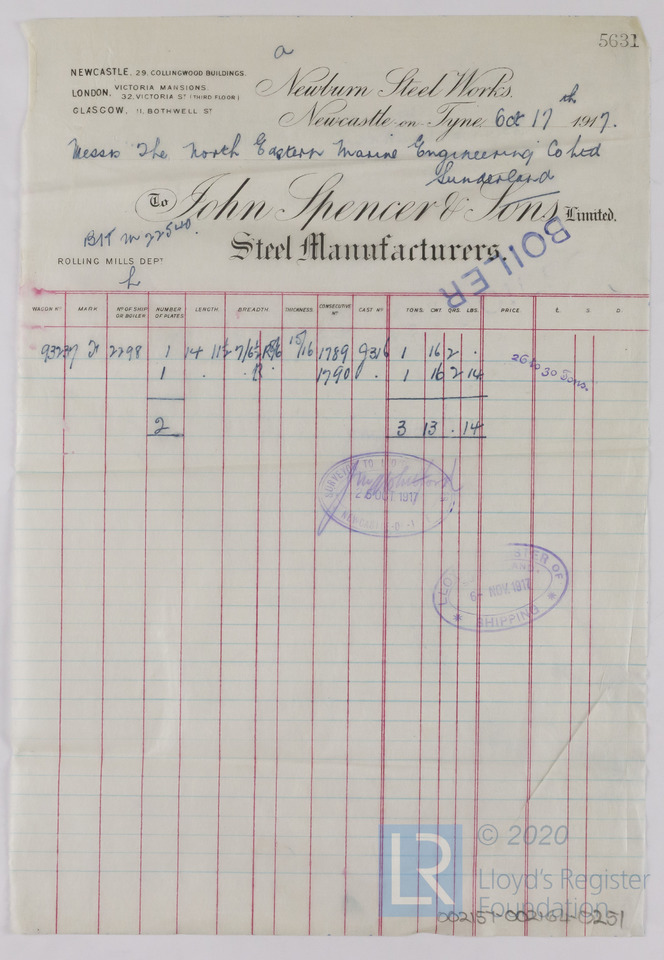 a
5631
NEWCASTLE, 29, COLLINGWOOD BUILDINGS.
LONDON, VICTORIA MANSIONS.
32, VICTORIA ST (THIRD FLOOR)
GLASGOW, 11, BOTHWELL ST
Newburn Steel Works.
Newcastle-on-Tyne, Oct 17th 1917.
Messrs The North Eastern Marine Engineering Co Ltd
Sunderland
To John Spencer & Sons Limited.
Steel Manufacturers.
ROLLING MILLS DEPT
BOILER
WAGON No MARK No OF SHIP OR BOILER NUMBER OF PLATES LENGTH. BREADTH. THICKNESS CONSECUTIVE No CAST No TONS. CWT QRS. LBS. PRICE. £ S. D.
93237 2298 1 14 11½ 7/6½ 15/16 1789 9316 1 16 2 .
1 . . 1790 . 1 16 2 14
26 to 30 Tons.
2 3 13 . 14
SURVEYOR TO
26 OCT 1917
LLOYD'S REGISTER OF SHIPPING
6- NOV. 1917
LR © 2020
Lloyd's Register
Foundation
002157-002164-0251